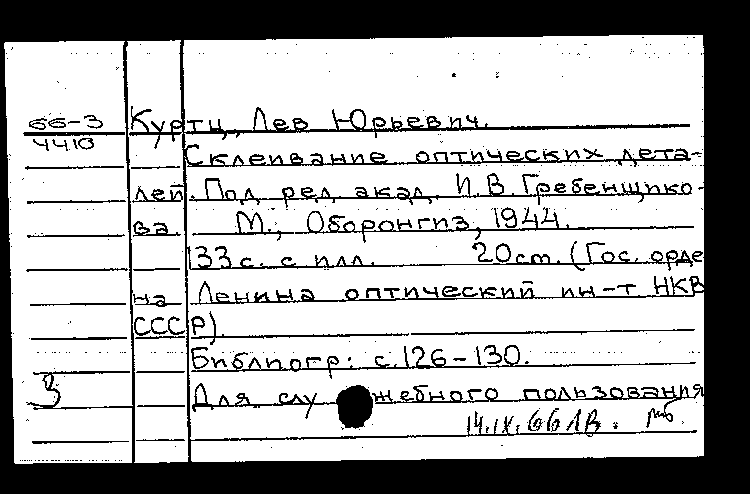 66-3
4410
Куртц, Лев Юрьевич.
Склеивание оптических дета-
лей. Под ред. акад. И.В. Гребенщико-
ва. М., Оборонгиз, 1944.
133 с. с илл. 20 см. (Гос. орде
на Ленина оптический ин-т НКВ
СССР).
Библиогр: с. 126-130.
3
Для служебного пользования
14.IX.66